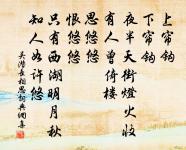 上帘钩
下帘钩
夜半天街灯火收
有人曾倚楼
思悠悠
恨悠悠
只有西湖明月秋
知人如许愁
吴潜长相思词典网集